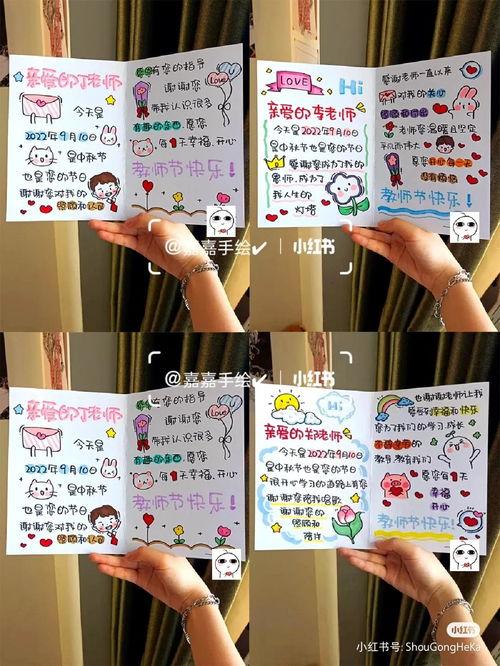 亲爱的丁老师
今天是
2022年9月10日
是中秋节
也是您的节日
谢谢您对我的
照顾和认可
感恩有您的指导
谢谢您
带我认识很多
有趣的东西 愿您
每1天幸福、开心
教师节快乐！
LOVE
Hi
亲爱的李老师
今天是2022年9月10日
是中秋节也是您的节日
感谢您成为我的
恩师,成为了
我人生的
灯塔
感谢老师一直以来
对我的关心
照顾和付出
老师您温暖且坚定
平凡而伟大
愿您开心每一天
没有烦恼
教师节快乐！
@嘉嘉手绘✔ | 小红书
亲爱的丁老师
今天是
2022年9月10日
是中秋节
也是您的节日
谢谢您对我的
照顾和认可
感恩有您的指导
谢谢您
带我认识很多
有趣的东西 愿您
每1天幸福、开心
教师节快乐！
Love
@嘉嘉手绘✔ | 小红书
Hi
亲爱的郑老师
今天是2022年9月10日
是中秋节也是您的节日
很开心学习的道路上有您
谢谢您陪我唱歌
谢谢您的
照顾和
陪伴
也谢谢老师让我
感受到幸福和快乐
您为了我们的学习、成长
教导、教育我们
愿您每1天
幸福
开心
教师节快乐！
小红书
小红书号: ShouGongHeKa